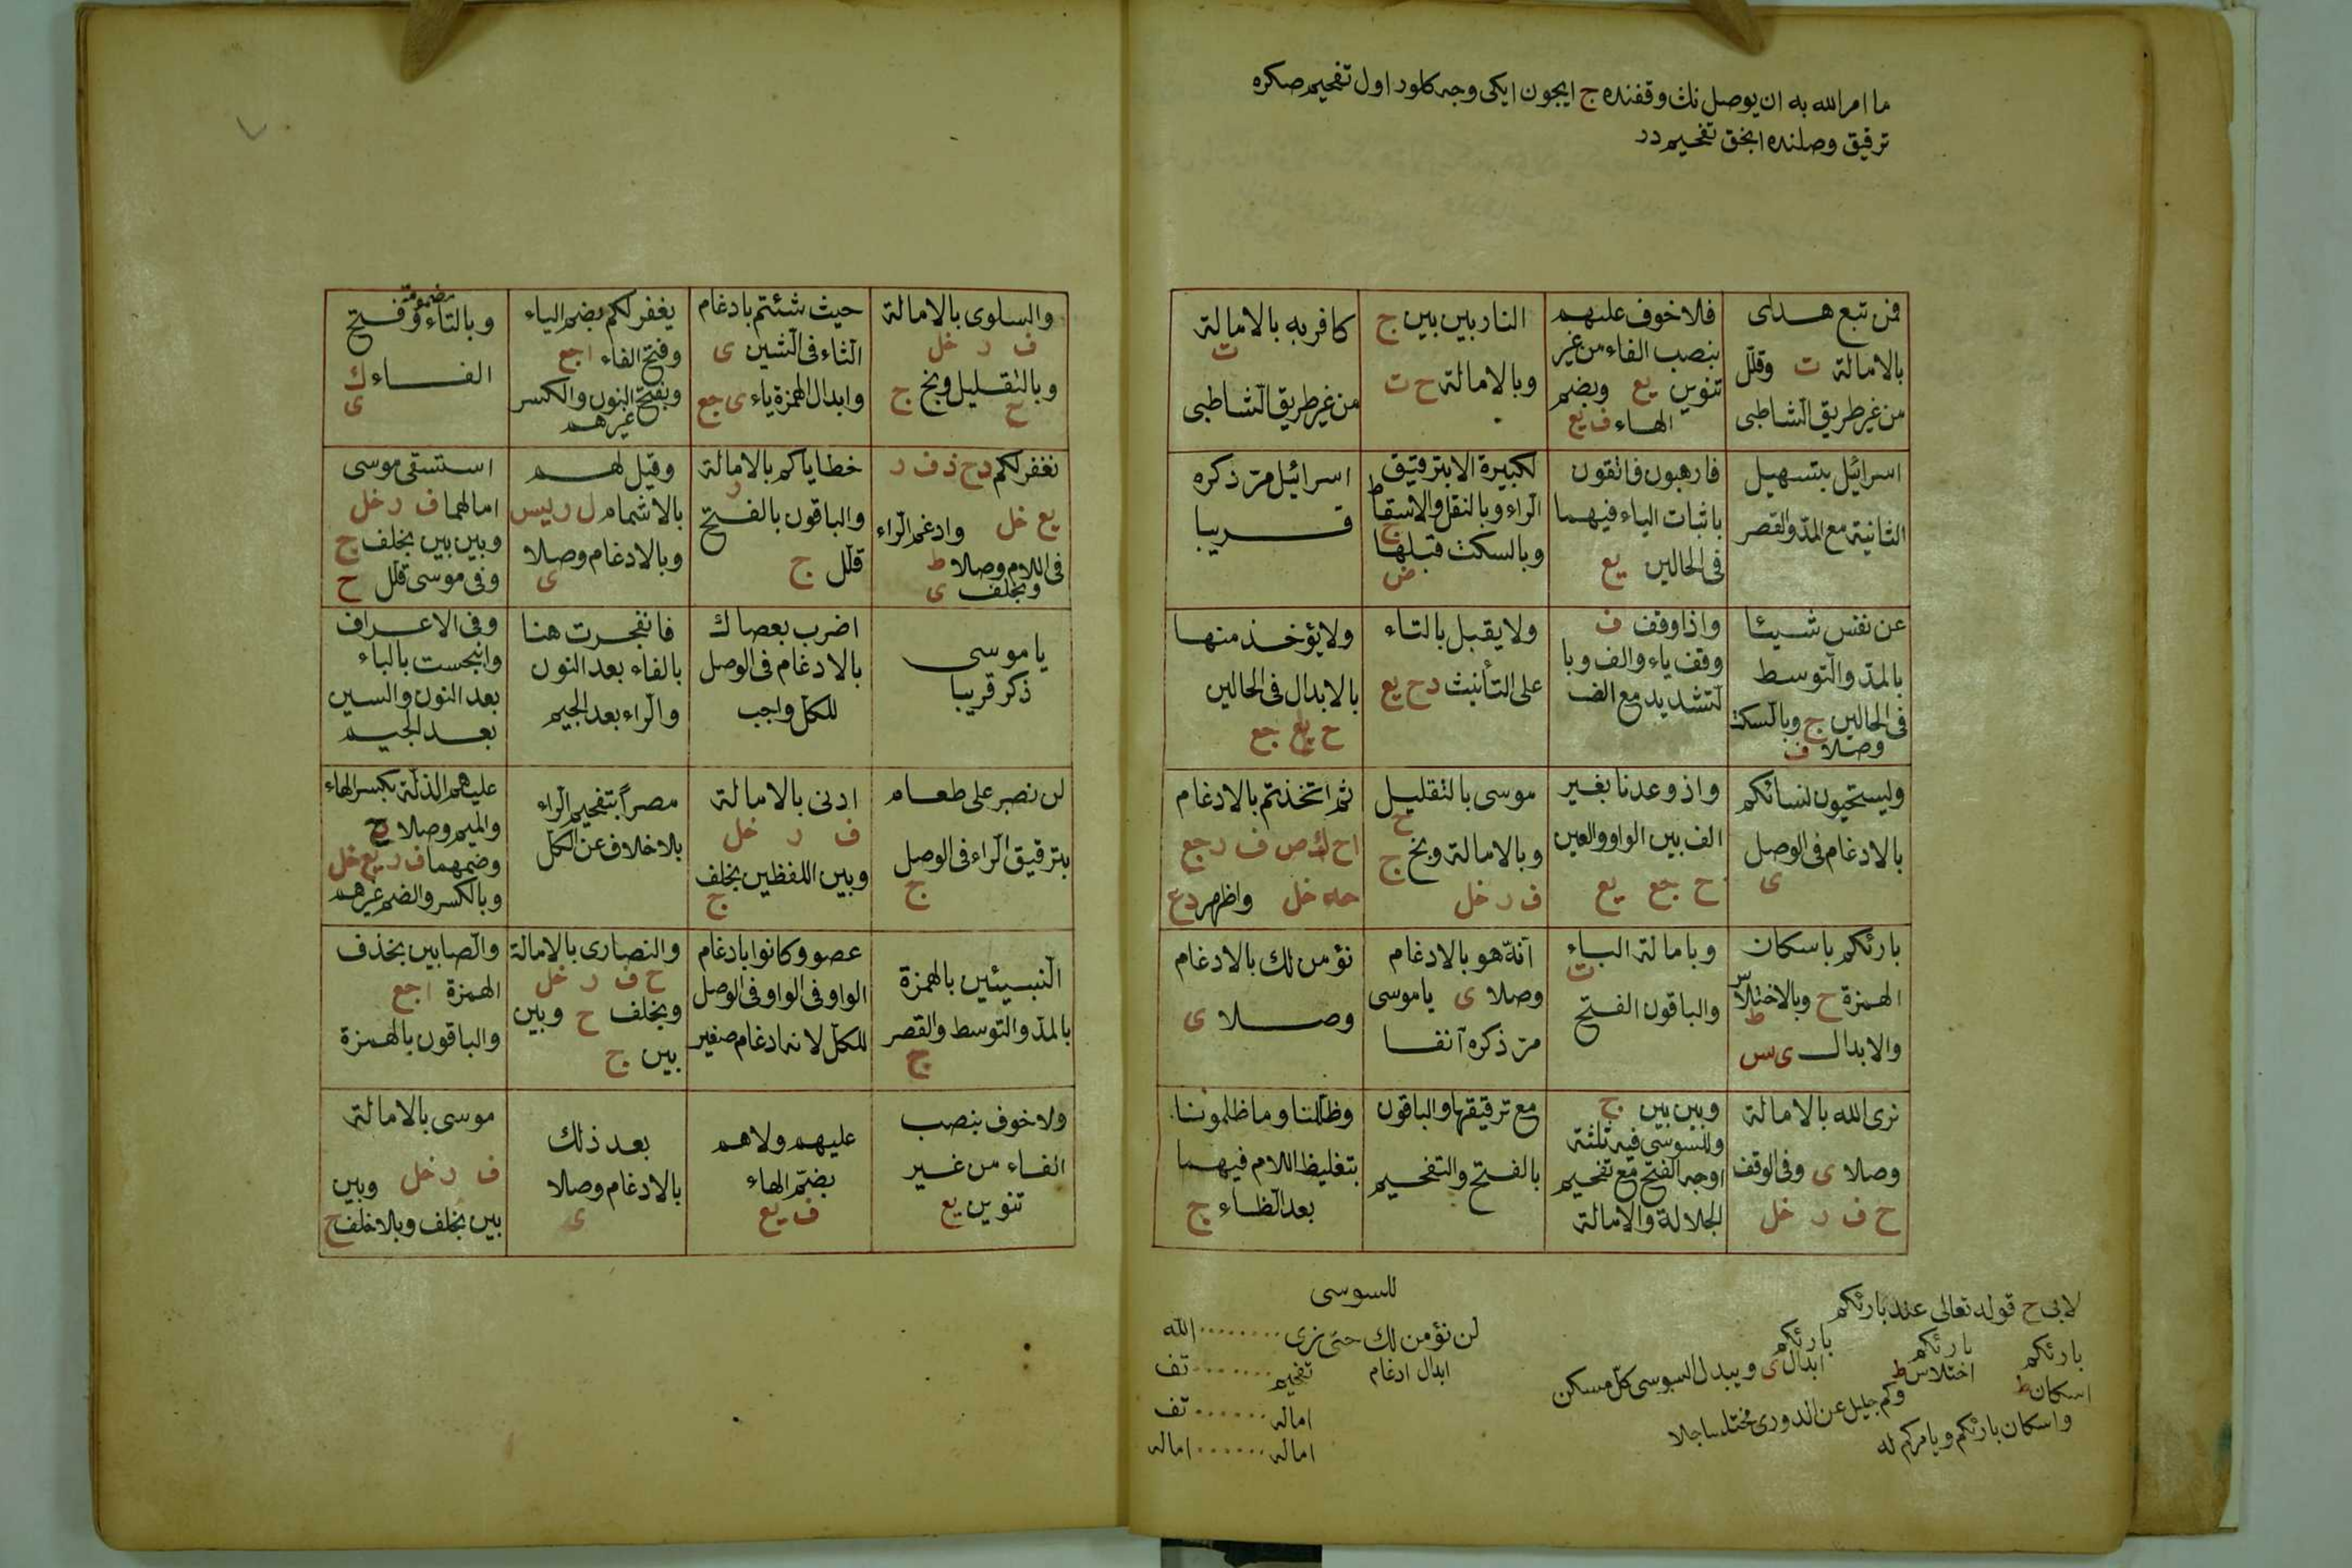 ما امر الله به ان يوصل نك وقفنده ج ايچون ايكى وجه كلور اول تفخيم صكره
ترقيق وصلنده انجق تفخيم در
فمن تبع هداى
بالامالة ت وقلل
من غير طريق الشاطبى
فلا خوف عليهم
بنصب الفاء من غير
تنوين يع وبضم
الهاء ف يع
النار بين بين ج
وبالامالة ح ت
كافر به بالامالة
ت
من غير طريق الشاطبى
اسرائيل بتسهيل
الثانية مع المد والقصر
فارهبون فاتقون
باثبات الياء فيهما
فى الحالين يع
لكبيرة الا بترقيق
الراء وبالنقل والاسقاط
ج
وبالسكت قبلها
ض
اسرائيل مرّ ذكره
قريبا
عن نفس شيئا
بالمد والتوسط
فى الحالين ج وبالسكت
وصلا ف
واذا وقف ف
وقف ياء والف وبا
لتشديد مع الف
ولا يقبل بالتاء
على التأنيث دح يع
ولا يؤخذ منها
بالابدال فى الحالين
ح يع جع
وليستحيون نسائكم
بالادغام فى الوصل
ى
واذ وعدنا بغير
الف بين الواو والعين
ح جع يع
موسى بالتقليل
ح
وبالامالة وبخ ج
ف ر خل
ثم اتخذتم بالادغام
اح ك ص ف ر جع
حه خل واظهر دع
بارئكم باسكان
الهمزة ح وبالاختلاس
ط
والابدال ى س
وبامالة الباء
ت
والباقون الفتح
انه هو بالادغام
وصلا ى ياموسى
مرّ ذكره آنفا
نؤمن لك بالادغام
وصلا ى
نرى الله بالامالة
وصلا ى وفى الوقف
ح ف ر خل
وبين بين ج
وللسوسى فيه ثلثة
اوجه الفتح مع تفخيم
الجلالة والامالة
مع ترقيقها والباقون
بالفتح والتفخيم
وظللنا وما ظلمونا
بتغليظ اللام فيهما
بعد الظاء ج
لابى ح قوله تعالى عند بارئكم
بارئكم بارئكم بارئكم
اسكان ط اختلاس ط ابدال ى ويبدل للسوسى كلّ مسكن
واسكان بارئكم ويامركم له
وكم جليل عن الدورى مختلسا جلا
للسوسى
لن نؤمن لك حتى نرى ........ الله
ابدال ادغام تفخيم ....... تف
اماله ....... تف
اماله ...... اماله
والسلوى بالامالة
ف ر خل
وبالتقليل وبخ ج
ح
حيث شئتم بادغام
الثاء فى الشين ى
وابدال الهمزة ياء ى جع
يغفر لكم بضم الياء
وفتح الفاء اجع
وبفتح النون والكسر
غيرهم
وبالتاء مضمومة وفتح
الفاء ك
ى
نغفر لكم دح ذ ف ر
يع خل وادغم الراء
فى اللام وصلا ط
وبخلف ى
خطاياكم بالامالة
ر
والباقون بالفتح
قلل ج
وقيل لهم
بالاشمام ل ر يس
وبالادغام وصلا
ى
استسقى موسى
امالهما ف ر خل
وبين بين بخلف ج
وفى موسى قلل ح
يا موسى
ذكر قريبا
اضرب بعصاك
بالادغام فى الوصل
للكل واجب
فانفجرت هنا
بالفاء بعد النون
والراء بعد الجيم
وفى الاعراف
وانبجست بالباء
بعد النون والسين
بعد الجيم
لن نصبر على طعام
بترقيق الراء فى الوصل
ج
ادنى بالامالة
ف ر خل
وبين اللفظين بخلف
ج
مصرا بتفخيم الراء
بلا خلاف عن الكل
عليهم الذلة بكسر الهاء
والميم وصلا ح
وضمهما ف ر يع خل
وبالكسر والضم غيرهم
النبيئين بالهمزة
بالمد والتوسط والقصر
ج
عصو وكانوا بادغام
الواو فى الواو فى الوصل
للكل لانه ادغام صغير
والنصارى بالامالة
ح ف ر خل
وبخلف ح وبين
بين ج
والصابين بحذف
الهمزة اجع
والباقون بالهمزة
ولا خوف بنصب
الفاء من غير
تنوين يع
عليهم ولا هم
بضم الهاء
ف يع
بعد ذلك
بالادغام وصلا
ى
موسى بالامالة
ف ر خل وبين
بين بخلف وبلا خلف ح